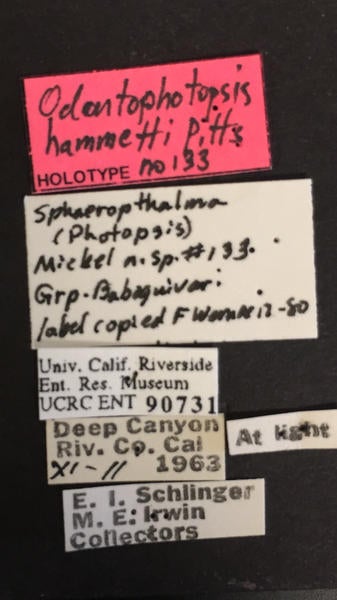 Odontophotopsis
hammetti Pitts
HOLOTYPE no 133
Sphaeropthalma
(Photopsis)
Mickel n. sp. #133.
Grp. Baboquivari
label copied F Werner 12-80
Univ. Calif. Riverside
Ent. Res. Museum
UCRC ENT 90731
Deep Canyon
Riv. Co. Cal
XI-11 1963
At light
E. I. Schlinger
M. E. Irwin
Collectors